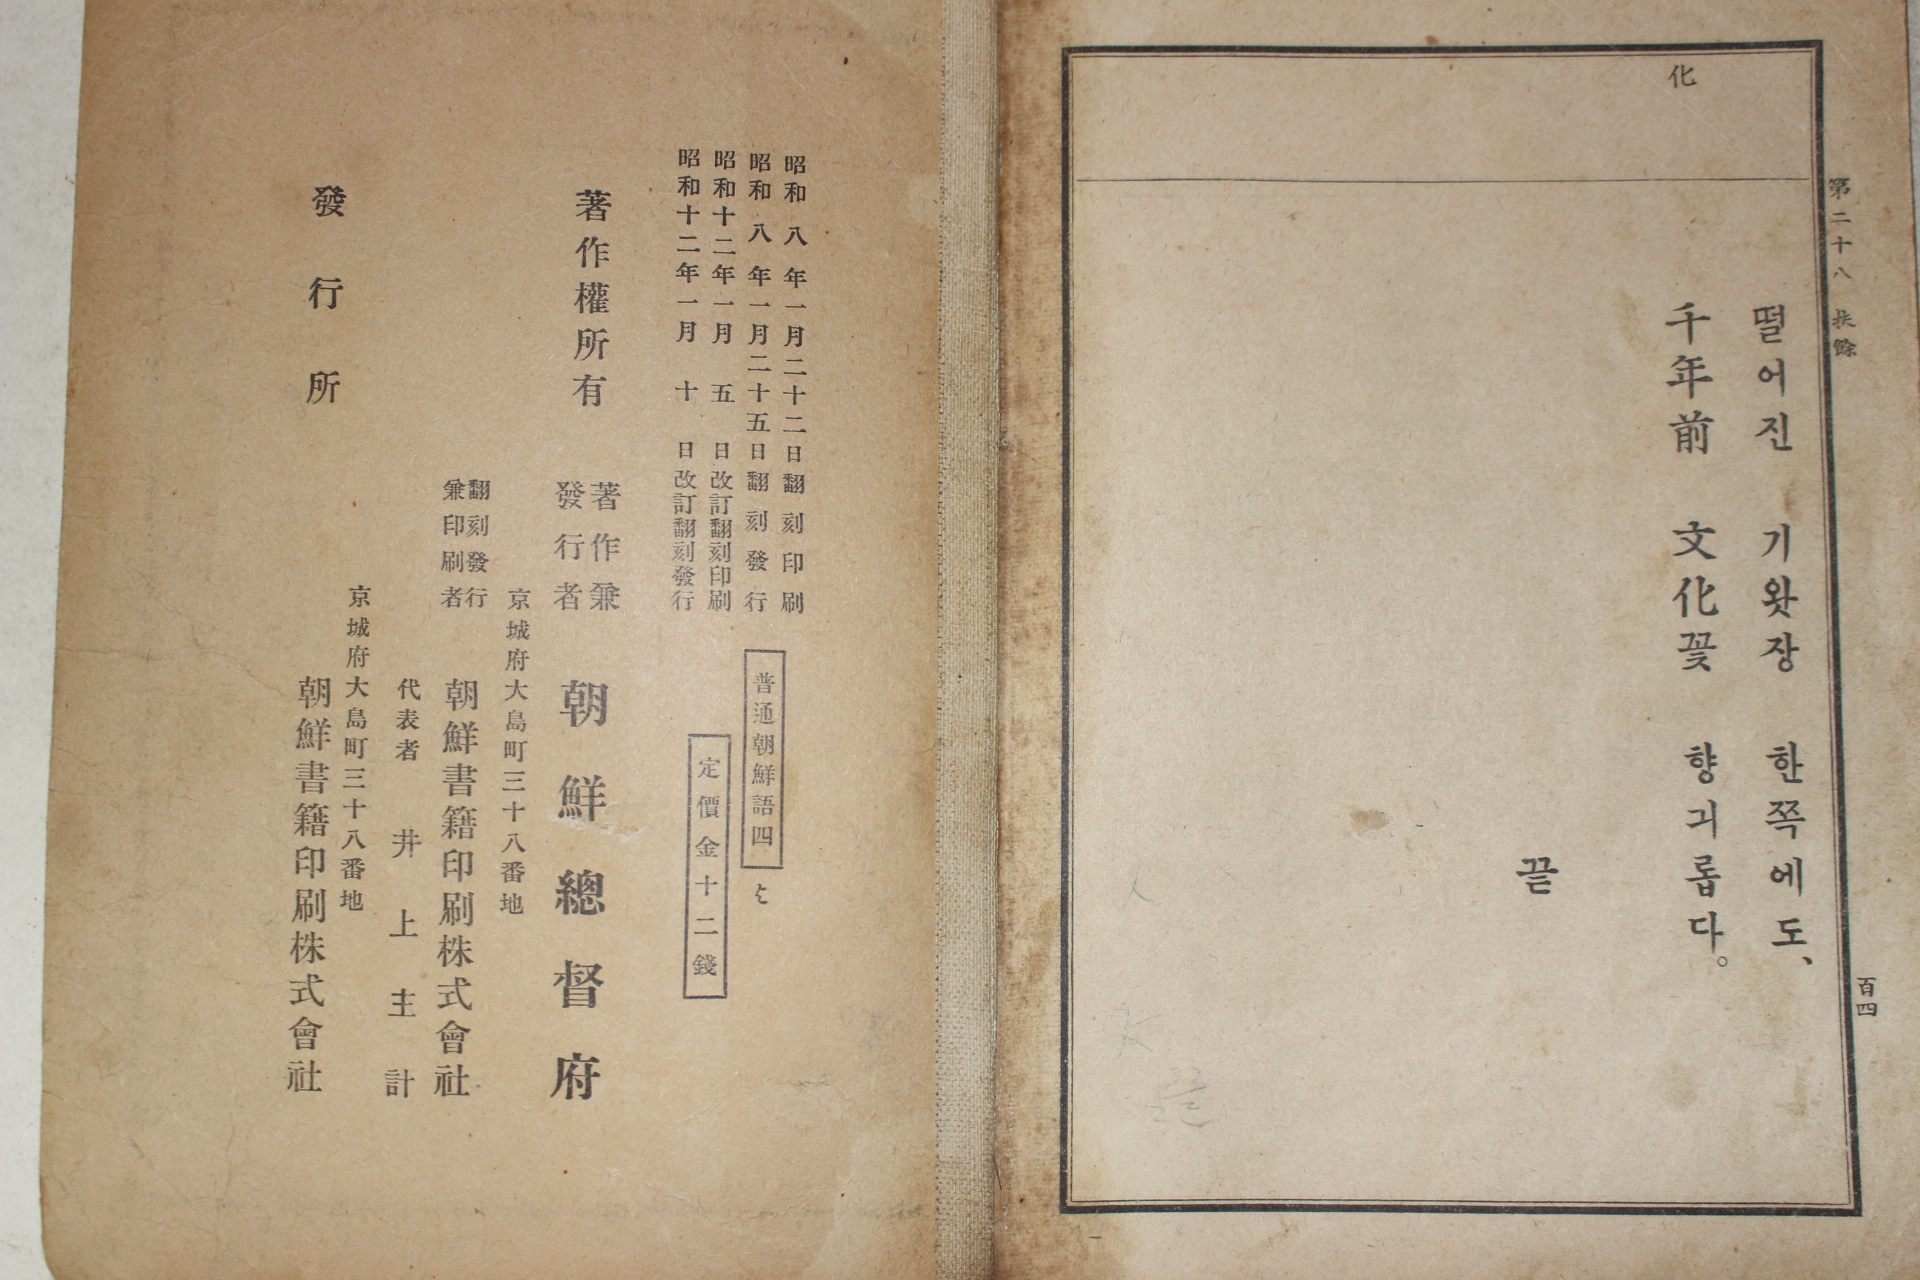 化
第二十八 扶餘
百四
떨어진 기왓장 한쪽에도、
千年前 文化꽃 향긔롭다。
끝
昭和八年一月二十二日翻刻印刷
昭和八年一月二十五日翻刻發行
昭和十二年一月五日改訂翻刻印刷
昭和十二年一月十日改訂翻刻發行
普通朝鮮語四
定價金十二錢
著作權所有
著作兼
發行者
朝鮮總督府
京城府大島町三十八番地
翻刻發行
兼印刷者
朝鮮書籍印刷株式會社
代表者 井上主計
京城府大島町三十八番地
發行所
朝鮮書籍印刷株式會社